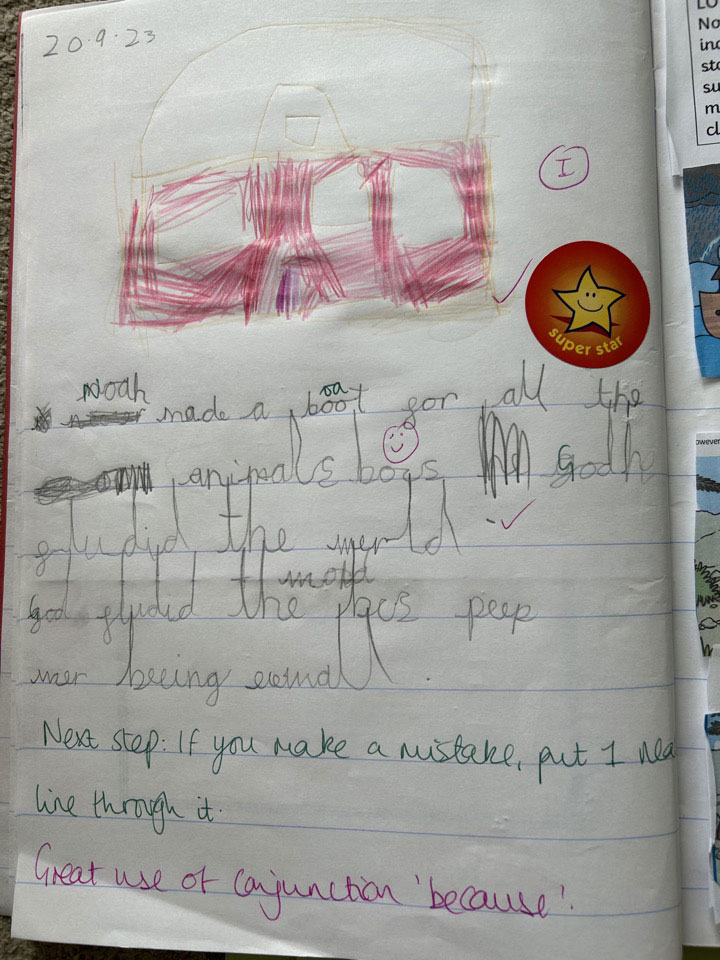 20.9.23
I
super star
Noah
oa
made a boot for all the
animals bcos God
gludid the werld
mold
God gludid the bcs peep
wer beeing
Next step: If you make a mistake, put 1 nea
line through it.
Great use of conjunction 'because'.
LO
No
inc
sto
su
m
cl
owever